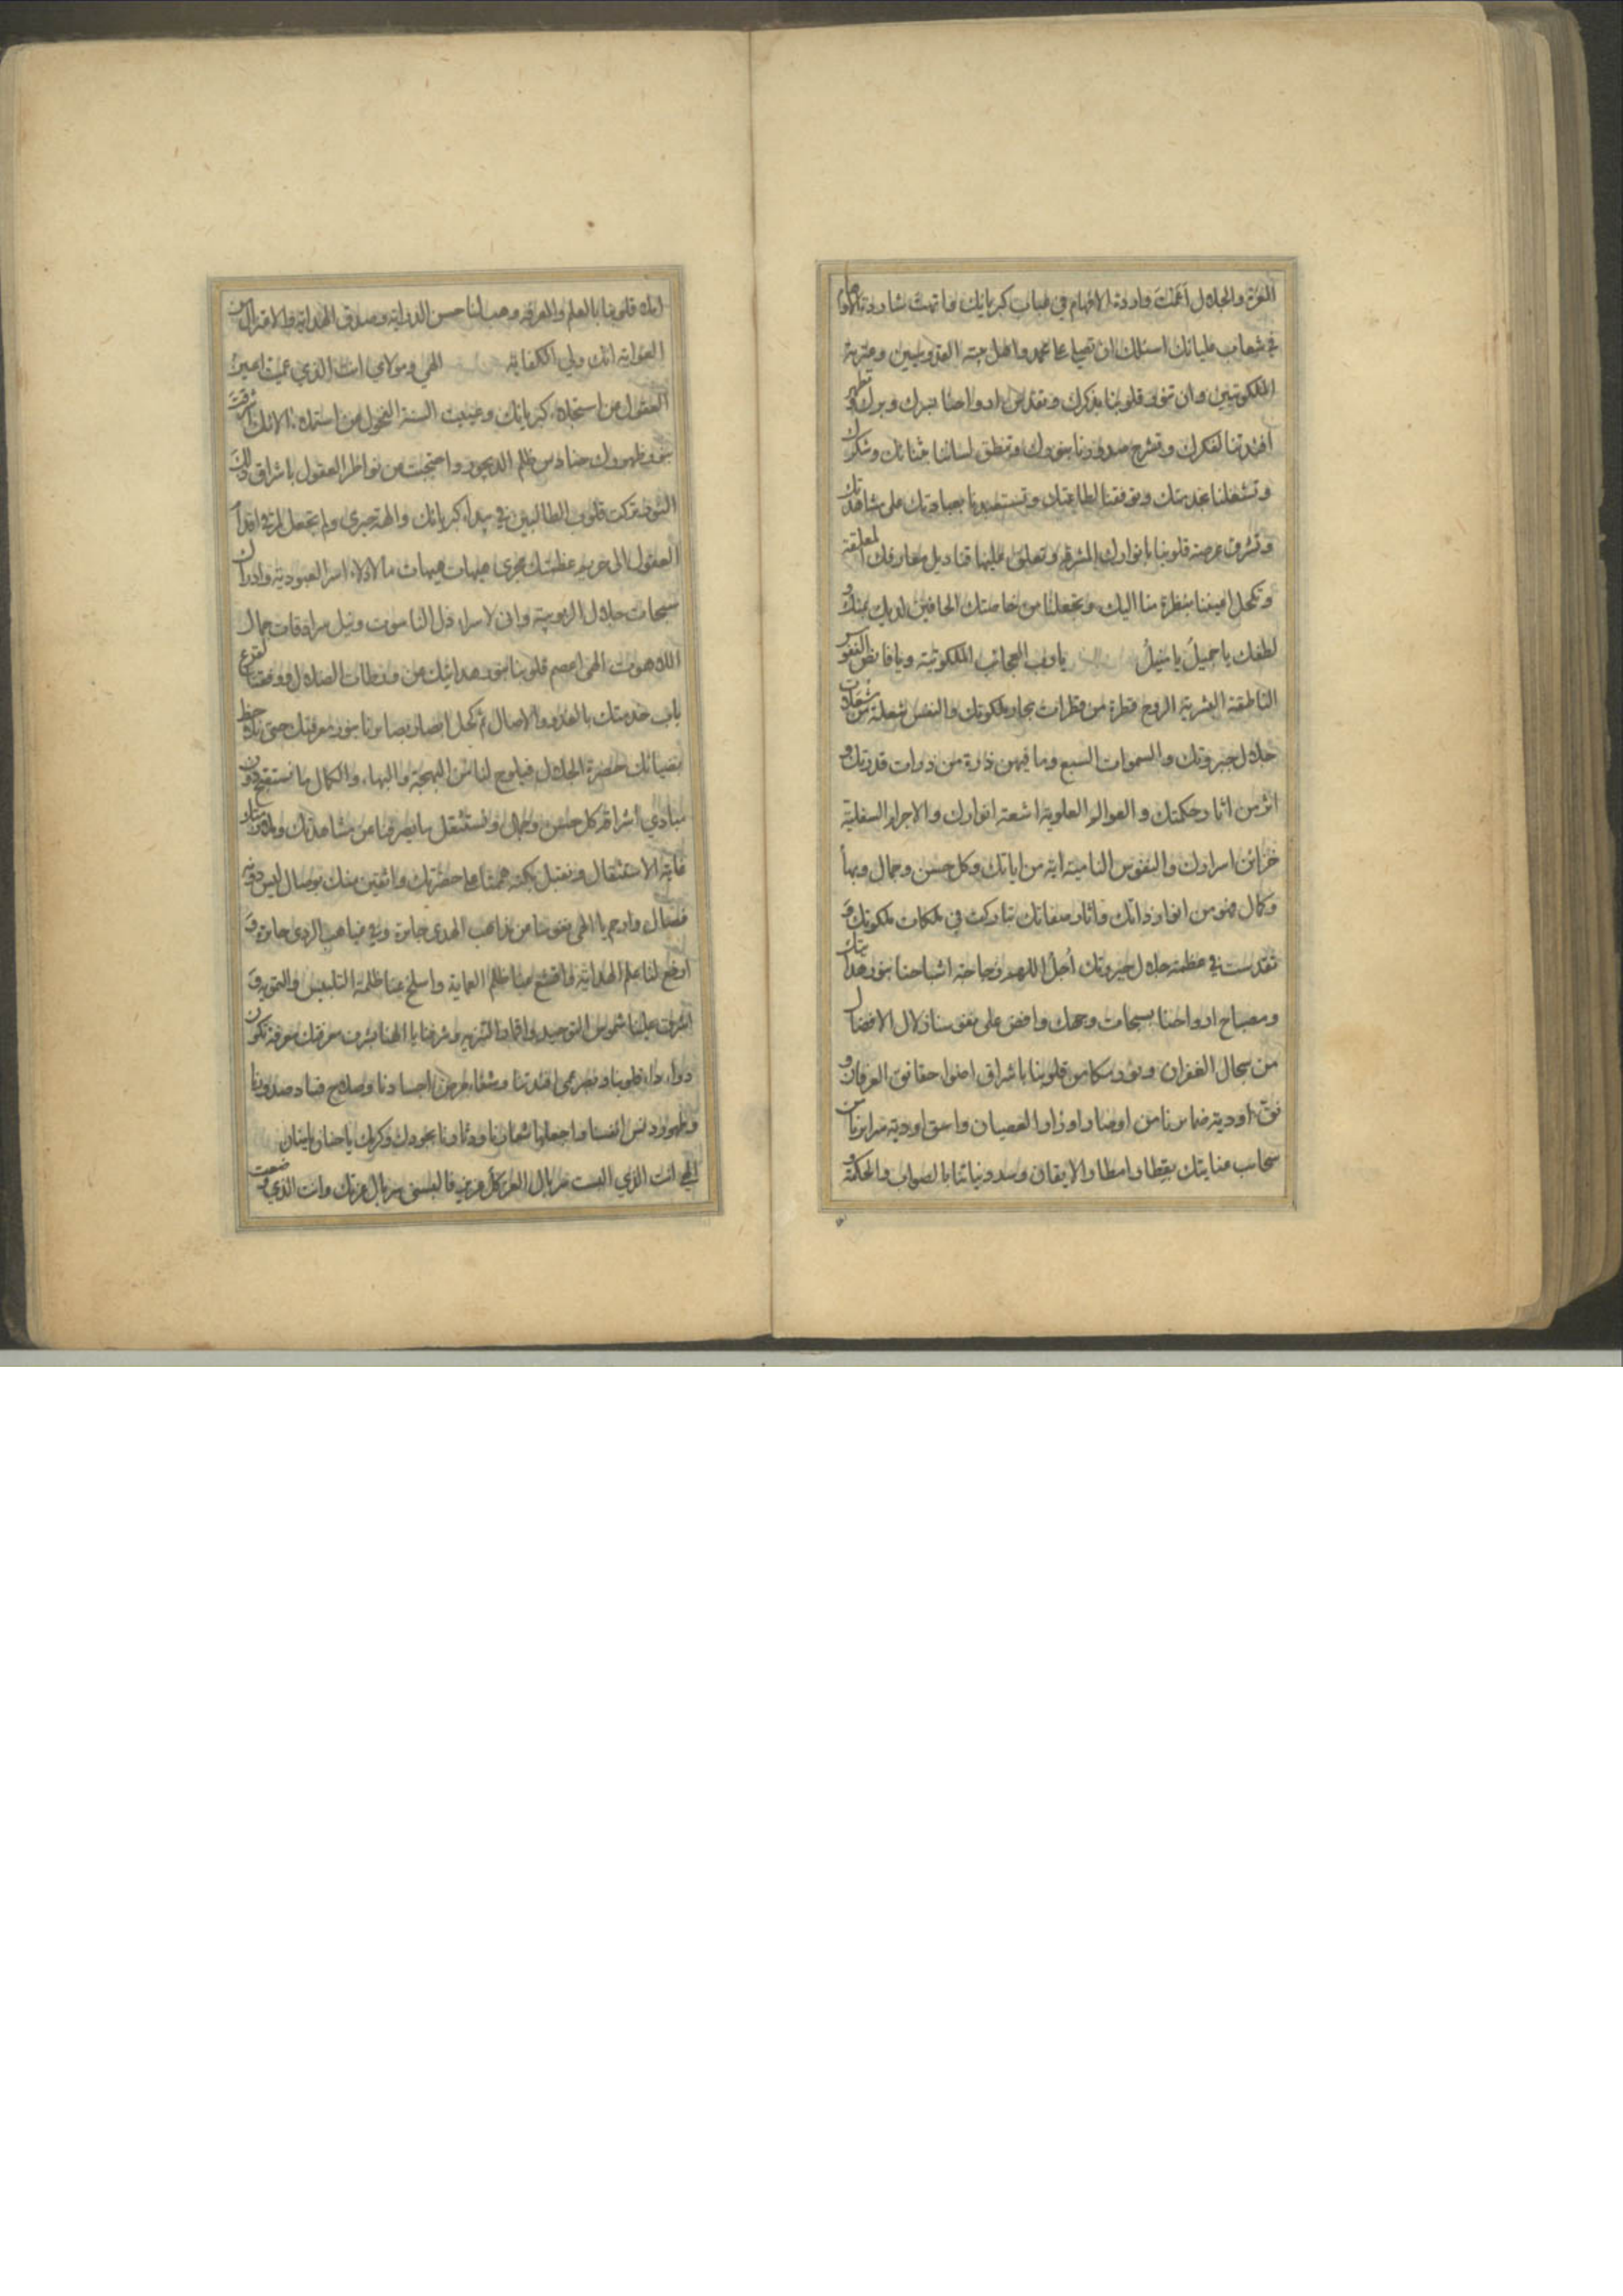 العزة والجلال اغمك واردة الافهام في ضباب كبريائك فاتهمت شاردة الاوهام
في شعاب عليائك اسئلك ان تصلي على محمد واهل جنة القدوسيين وعترة
الملكوتيين وان تنور قلوبنا بذكرك وتقدس ارواحنا بسرك وبرك وتطهر
افئدتنا لفكرك وتشرح صدورنا بنورك وتنطق لساننا بثنائك وشكرك
وتشغلنا بخدمتك وتوفقنا لطاعتك وتستعبدنا بعبادتك على مشاهدتك
وتشرق عرصة قلوبنا بانوارك المشرقة وتعلق عليها قناديل معارفك المعلقة
وتكحل اعيننا بنظرة منا اليك وتجعلنا من خاصتك الحافين لديك بمنك و
لطفك يا جميل يا منيل يا رب العجائب الملكوتية ويا فائض النفوس
الناطقة البشرية الروح قطرة من قطرات بحار ملكوتك والنفس شعلة من شعلات
جلال جبروتك والسموات السبع وما فيهن ذرة من ذرات قدرتك و
اثر من اثار حكمتك والعوالم العلوية اشعة انوارك والاجرام السفلية
خزائن اسرارك والنفوس النامية اية من اياتك وكل حسن وجمال وبهاء
وكمال ضوء من انوار ذاتك واثار صفاتك تباركت في ملكات ملكوتك و
تقدست في عظمة جلال جبروتك أجل اللهم زجاجة اشباحنا بنور هدايتك
ومصباح ارواحنا بسبحات وجهك وافض على نفوسنا زلال الافضال
من سجال الغفران ونور مشكاة قلوبنا باشراق اضواء حقائق العرفان و
نق اودية ضمائرنا من اوضار اوزار العصيان واسق اودية سرايرنا من
سحائب عنايتك بقطار امطار الايقان وسدد نياتنا بالصواب والحكمة
املا قلوبنا بالعلم والمعرفة وهب لنا حسن الدراية وصدق الهداية والاعتزال من
الغواية انك ولي الكفاية الهي ومولاي انت الذي عميت اعين
العقول عن استجلاء كبريائك وعييت السنة الفحول من استملاء الائك اشرقت
بنور ظهورك حنادس ظلم الديجور واحتجبت من نواظر العقول باشراق ذلك
النور تركت قلوب الطالبين في بيداء كبريائك والهة حيرى ولم تجعل لمرقى اقدام
العقول الى حريم عظمتك مجرى هيهات هيهات ما لاذلاء اسر العبودية وادراك
سبحات جلال الربوبية وانى لاسراء ذل الناسوت ونيل سرادقات جمال
اللاهوت الهي اعصم قلوبنا بنور هدايتك من ورطات الضلال ووفقنا لقرع
باب خدمتك بالغدو والاصال ثم كحل ابصار بصائرنا بنور معرفتك حتى نلاحظ
بضيائك حضرة الجلال فيلوح لنا من البهجة والبهاء والكمال ما نستقبح دون
مبادي اشراقه كل حسن وجمال ونستثقل ما يصرفنا عن مشاهدتك وملازمتك
غاية الاستثقال ونقبل بكنه همتنا على حضرتك واثقين منك بوصال ليس دونه
فصال وارحم يا الهي نفوسنا من مذاهب الهدى جائرة وفي غياهب الردى حائرة و
اوضح لنا علم الهداية واقشع عنا ظلم العماية واسلخ عنا ظلمة التلبيس والتمويه و
اشرق علينا شموس التوحيد واقمار التنزيه وشرفنا يا الهنا بشرف معرفتك معرفة تكون
دواء داء قلوبنا وبصر عمى افئدتنا وشفاء مرض اجسادنا وصلاح فساد صدورنا
وطهور دنس انفسنا واجعلها شعارنا ودثارنا بجودك وكرمك يا حنان يا منان
الهي انت الذي البست سربال العز كل عزيز فالبسني سربال عزتك وانت الذي وضعت